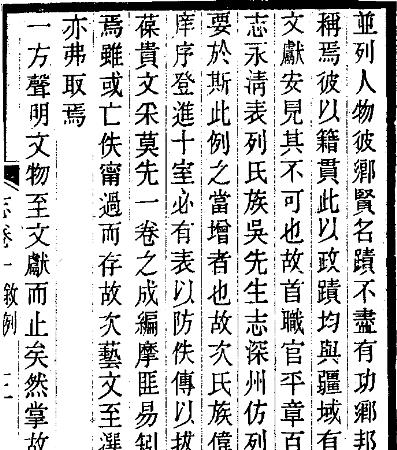 並列人物彼鄉賢名蹟不盡有功鄉邦
稱焉彼以籍貫此以政蹟均與疆域有
文獻安見其不可也故首職官平章百
志永清表列氏族吳先生志深州仿列
要於斯此例之當增者也故次氏族偉
庠序登進十室必有表以防佚傳以拔
葆貴文釆莫先一卷之成編摩匪易矧
焉雖或亡佚甯過而存故次藝文至選
亦弗取焉
一方聲明文物至文獻而止矣然掌故
志卷一敘例